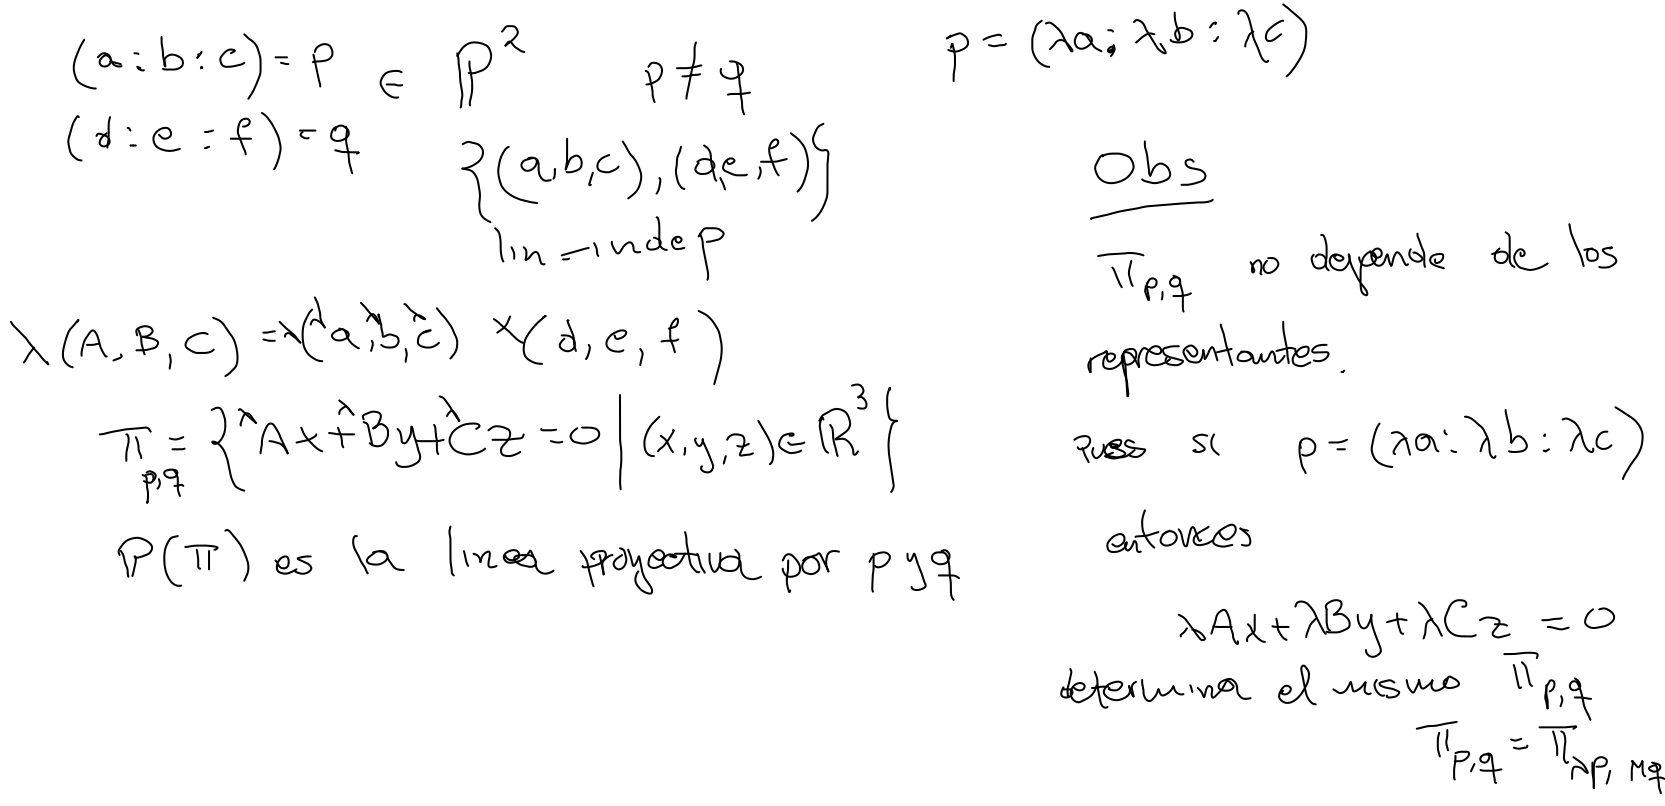 (a:b:c) = p ∈ P² p ≠ q
(d:e:f) = q
{(a,b,c),(d,e,f)}
lin-indep
λ(A,B,C) = λ(λa,λb,λc) × (d,e,f)
π_{p,q} = {λAx+λBy+λCz=0 | (x,y,z)∈ℝ³}
P(π) es la linea proyectiva por p y q
p = (λa:λb:λc)
Obs
π_{p,q} no depende de los
representantes.
pues si p = (λa:λb:λc)
entonces
λAx+λBy+λCz = 0
determina el mismo π_{p,q}
π_{p,q} = π_{λp, Mq}